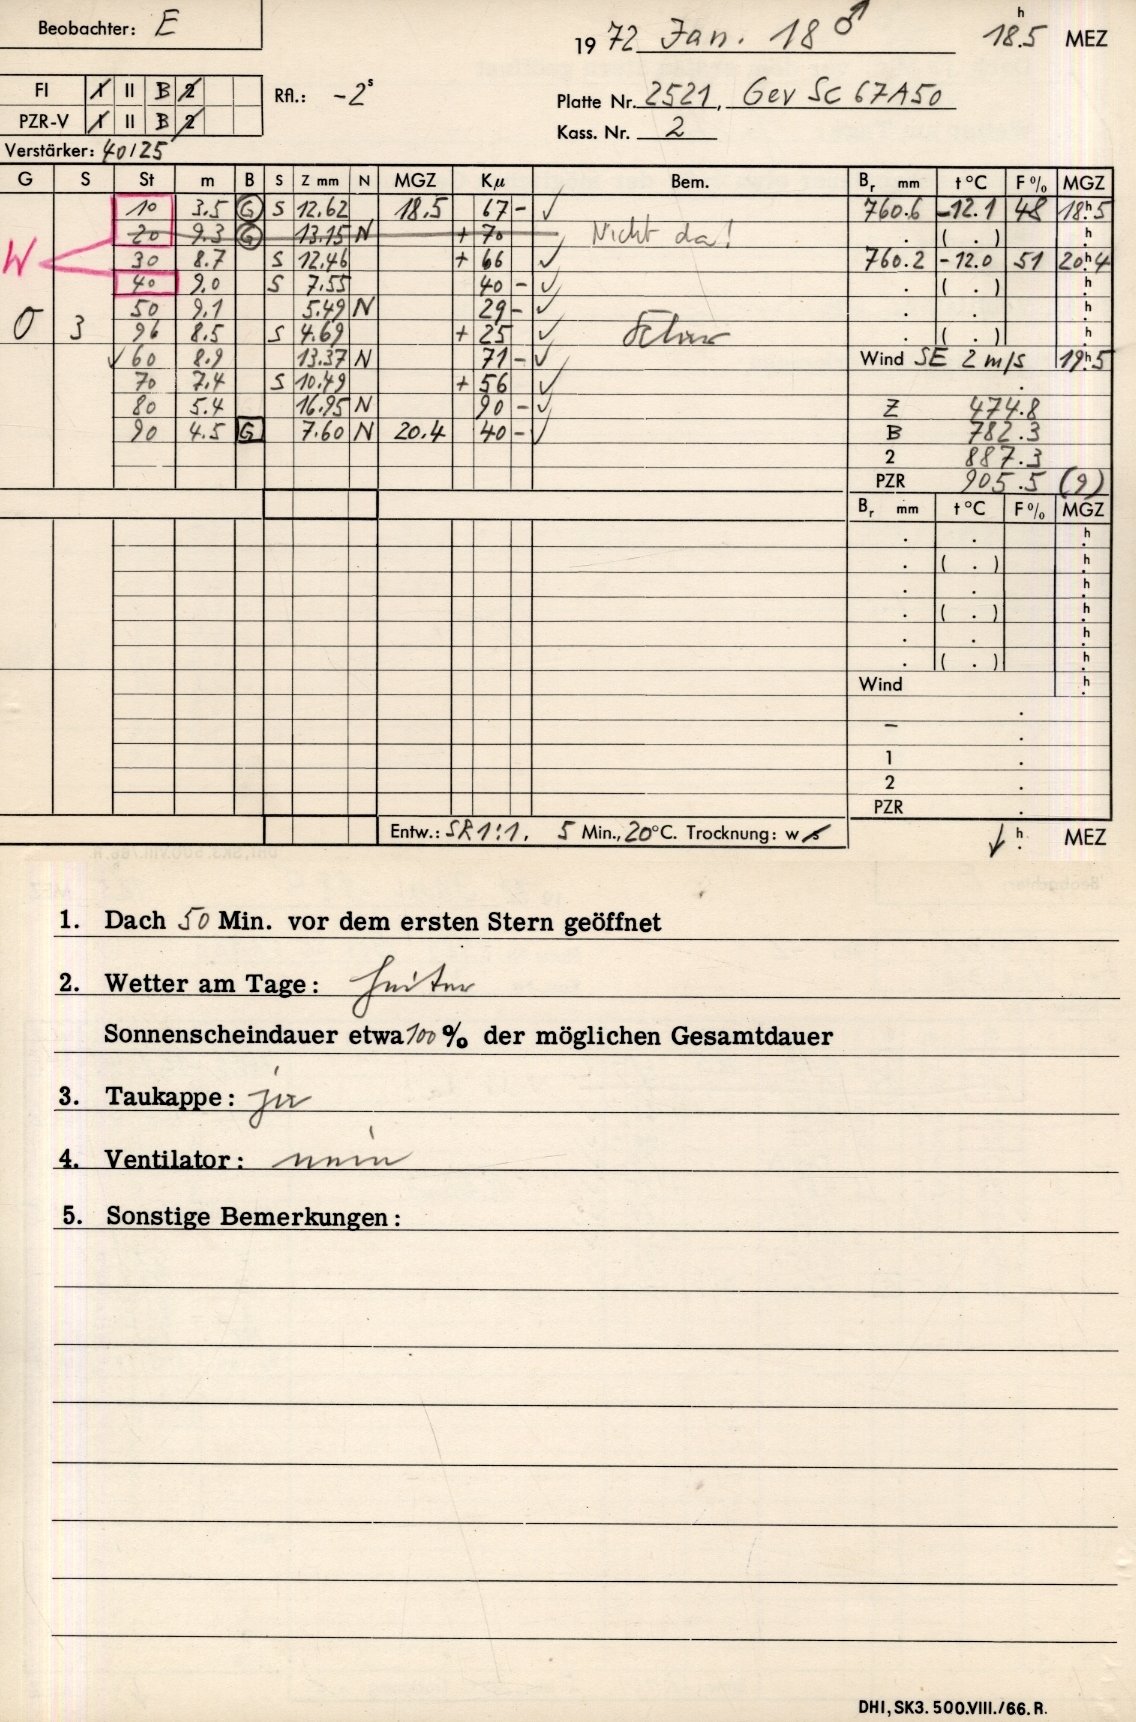 Beobachter: E
1972 Jan. 18 ♂ 18.5 h MEZ
FI I II B 2
PZR-V I II B 2
Rfl.: -2 s
Platte Nr. 2521, Gev Sc 67A50
Kass. Nr. 2
Verstärker: 40/25
G S St m B S Z mm N MGZ Kμ Bem. Br mm t °C F % MGZ
10 3.5 G S 12.62 18.5 67 - ✓ 760.6 -12.1 48 18h.5
20 9.3 G 13.15 N + 70 ✓ Nicht da! . ( . ) h.
W 30 8.7 S 12.46 + 66 ✓ 760.2 -12.0 51 20h.4
40 9.0 S 7.55 40 - ✓ . ( . ) h.
50 9.1 5.49 N 29 - ✓ . . h.
O 3 96 8.5 S 4.69 + 25 ✓ . ( . ) h.
✓ 60 8.9 13.37 N 71 - ✓ Wind SE 2 m/s 19h.5
70 7.4 S 10.49 + 56 ✓ .
80 5.4 16.95 N 90 - ✓ Z 474.8
90 4.5 G 7.60 N 20.4 40 - ✓ B 782.3
2 887.3
PZR 905.5 (9)
Br mm t °C F % MGZ
. . h.
. ( . ) h.
. . h.
. ( . ) h.
. . h.
. ( . ) h.
Wind h.
.
– .
1 .
2 .
PZR .
Entw.: SR 1:1. 5 Min., 20°C. Trocknung: w s
↓ h. MEZ
1. Dach 50 Min. vor dem ersten Stern geöffnet
2. Wetter am Tage: heiter
Sonnenscheindauer etwa 100 % der möglichen Gesamtdauer
3. Taukappe: ja
4. Ventilator: nein
5. Sonstige Bemerkungen:
DHI, SK3. 500.VIII./66. R.